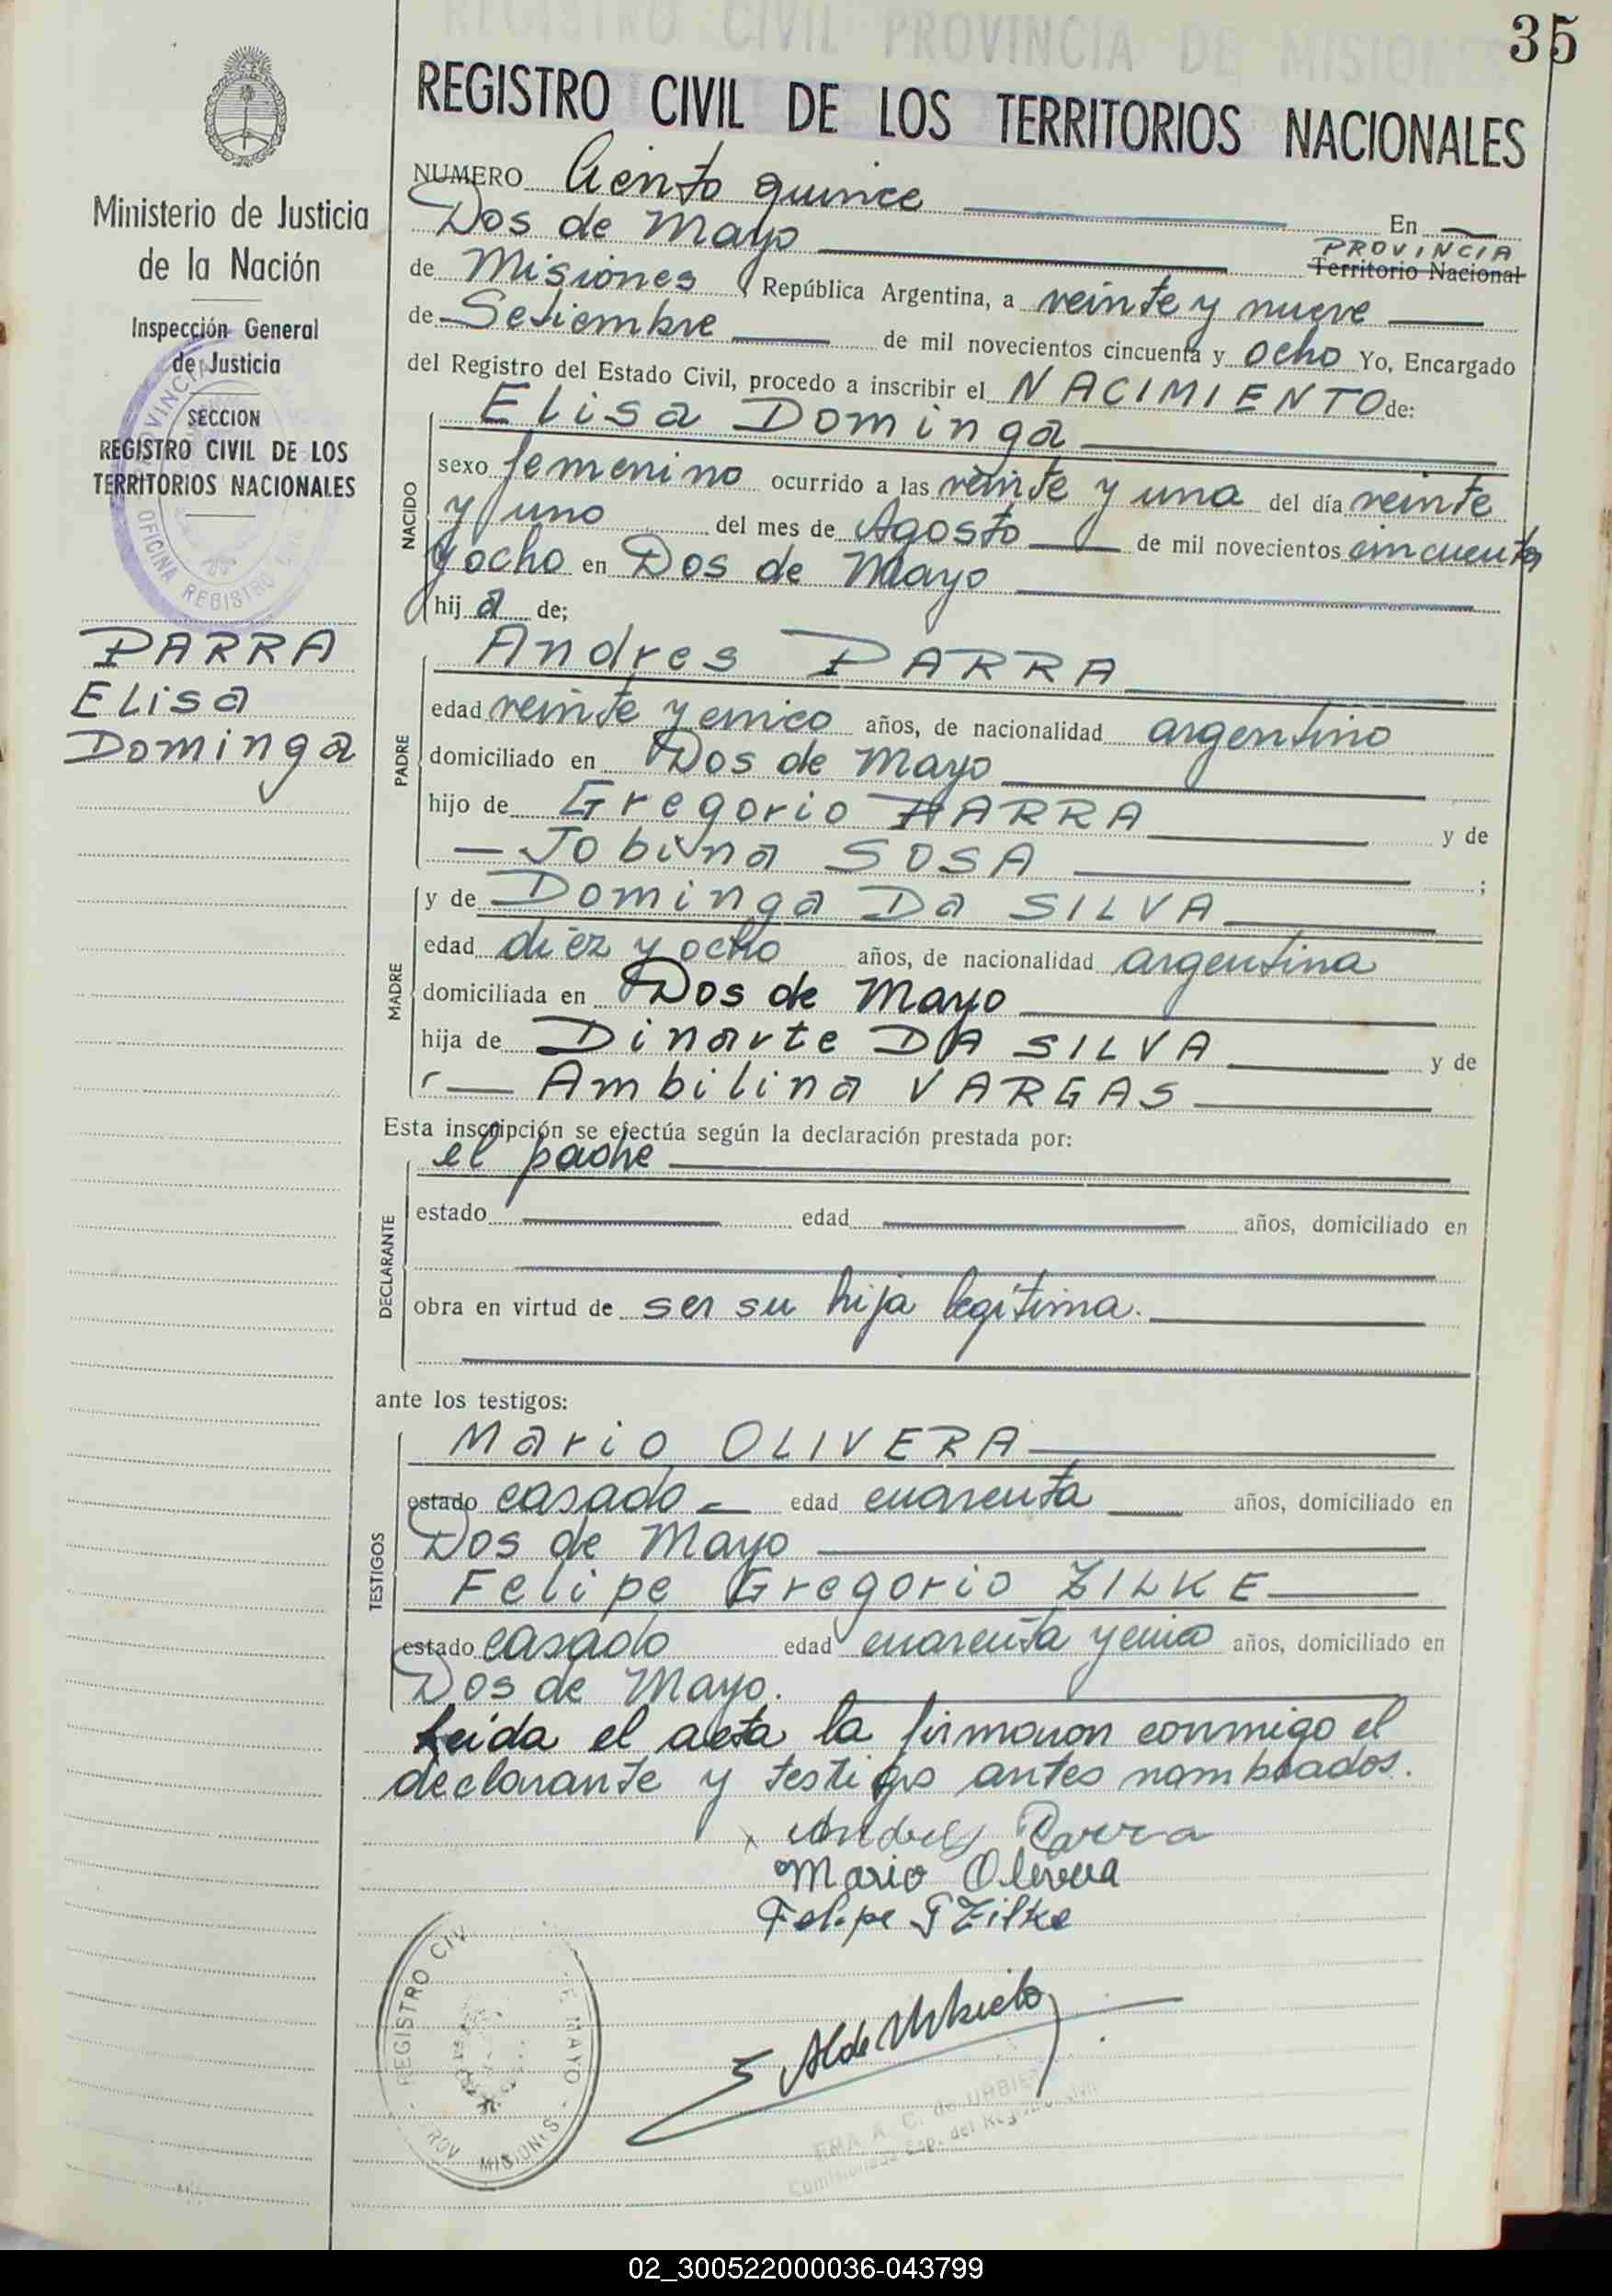 35
REGISTRO CIVIL PROVINCIA DE MISIONES
REGISTRO CIVIL DE LOS TERRITORIOS NACIONALES
Ministerio de Justicia
de la Nación
Inspección General
de Justicia
SECCION
REGISTRO CIVIL DE LOS
TERRITORIOS NACIONALES
PROVINCIA
OFICINA REGISTRO
PARRA
Elisa
Dominga
NUMERO Ciento quince En
Dos de Mayo PROVINCIA
Territorio Nacional
de Misiones, República Argentina, a veinte y nueve
de Setiembre de mil novecientos cincuenta y ocho Yo, Encargado
del Registro del Estado Civil, procedo a inscribir el NACIMIENTO de:
NACIDO
Elisa Dominga
sexo femenino ocurrido a las veinte y una del día veinte
y uno del mes de Agosto de mil novecientos cincuenta
y ocho en Dos de Mayo
hij a de;
PADRE
Andres PARRA
edad veinte y cinco años, de nacionalidad argentino
domiciliado en Dos de Mayo
hijo de Gregorio PARRA y de
Jobina SOSA ;
MADRE
y de Dominga Da SILVA
edad diez y ocho años, de nacionalidad argentina
domiciliada en Dos de Mayo
hija de Dinarte DA SILVA y de
Ambilina VARGAS
Esta inscripción se efectúa según la declaración prestada por:
DECLARANTE
el padre
estado edad años, domiciliado en
obra en virtud de ser su hija legítima.
ante los testigos:
TESTIGOS
Mario OLIVERA
estado casado edad cuarenta años, domiciliado en
Dos de Mayo
Felipe Gregorio ZILKE
estado casado edad cuarenta y cinco años, domiciliado en
Dos de Mayo.
Leida el acta la firmaron conmigo el
declarante y testigos antes nombrados.
Andres Parra
Mario Olivera
Felipe G Zilke
REGISTRO CIV
E MAYO
ROV MISIONES
E A de Urbieta
EMA A. C. de URBIE
del Registro Civil
02_300522000036-043799